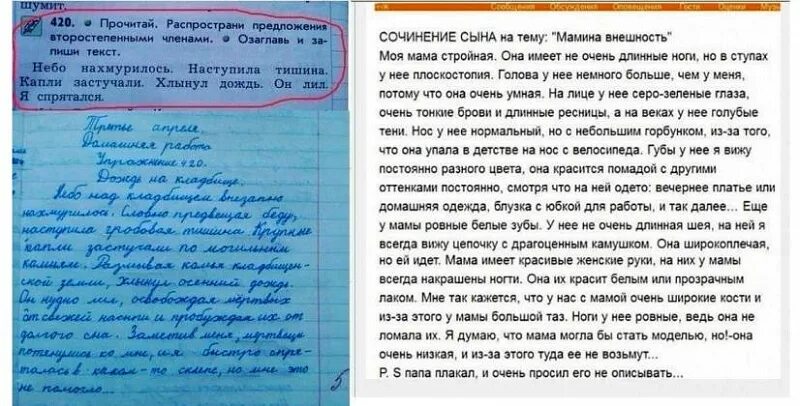 шумит.
420. • Прочитай. Распространи предложения
второстепенными членами. • Озаглавь и за-
пиши текст.
Небо нахмурилось. Наступила тишина.
Капли застучали. Хлынул дождь. Он лил.
Я спрятался.
Третье апреля.
Домашняя работа
Упражнение 420.
Дождь на кладбище.
Небо над кладбищем внезапно
нахмурилось. Словно предвещая беду,
наступила гробовая тишина. Крупные
капли застучали по могильным
камням. Размывая комья кладбищен-
ской земли, хлынул осенний дождь.
Он нудно лил, освобождая мёртвых
от свежей насыпи и пробуждая их от
долгого сна. Заметив меня, мертвецы
потянулись ко мне, и я быстро спря-
талась в каком-то склепе, но мне это
не помогло...
5
Сообщения Обсуждения Оповещения Гости Оценки
СОЧИНЕНИЕ СЫНА на тему: "Мамина внешность"
Моя мама стройная. Она имеет не очень длинные ноги, но в ступах
у нее плоскостопия. Голова у нее немного больше, чем у меня,
потому что она очень умная. На лице у нее серо-зеленые глаза,
очень тонкие брови и длинные ресницы, а на веках у нее голубые
тени. Нос у нее нормальный, но с небольшим горбунком, из-за того,
что она упала в детстве на нос с велосипеда. Губы у нее я вижу
постоянно разного цвета, она красится помадой с другими
оттенками постоянно, смотря что на ней одето: вечернее платье или
домашняя одежда, блузка с юбкой для работы, и так далее... Еще
у мамы ровные белые зубы. У нее не очень длинная шея, на ней я
всегда вижу цепочку с драгоценным камушком. Она широкоплечая,
но ей идет. Мама имеет красивые женские руки, на них у мамы
всегда накрашены ногти. Она их красит белым или прозрачным
лаком. Мне так кажется, что у нас с мамой очень широкие кости и
из-за этого у мамы большой таз. Ноги у нее ровные, ведь она не
ломала их. Я думаю, что мама могла бы стать моделью, но!-она
очень низкая, и из-за этого туда ее не возьмут...
P. S папа плакал, и очень просил его не описывать...